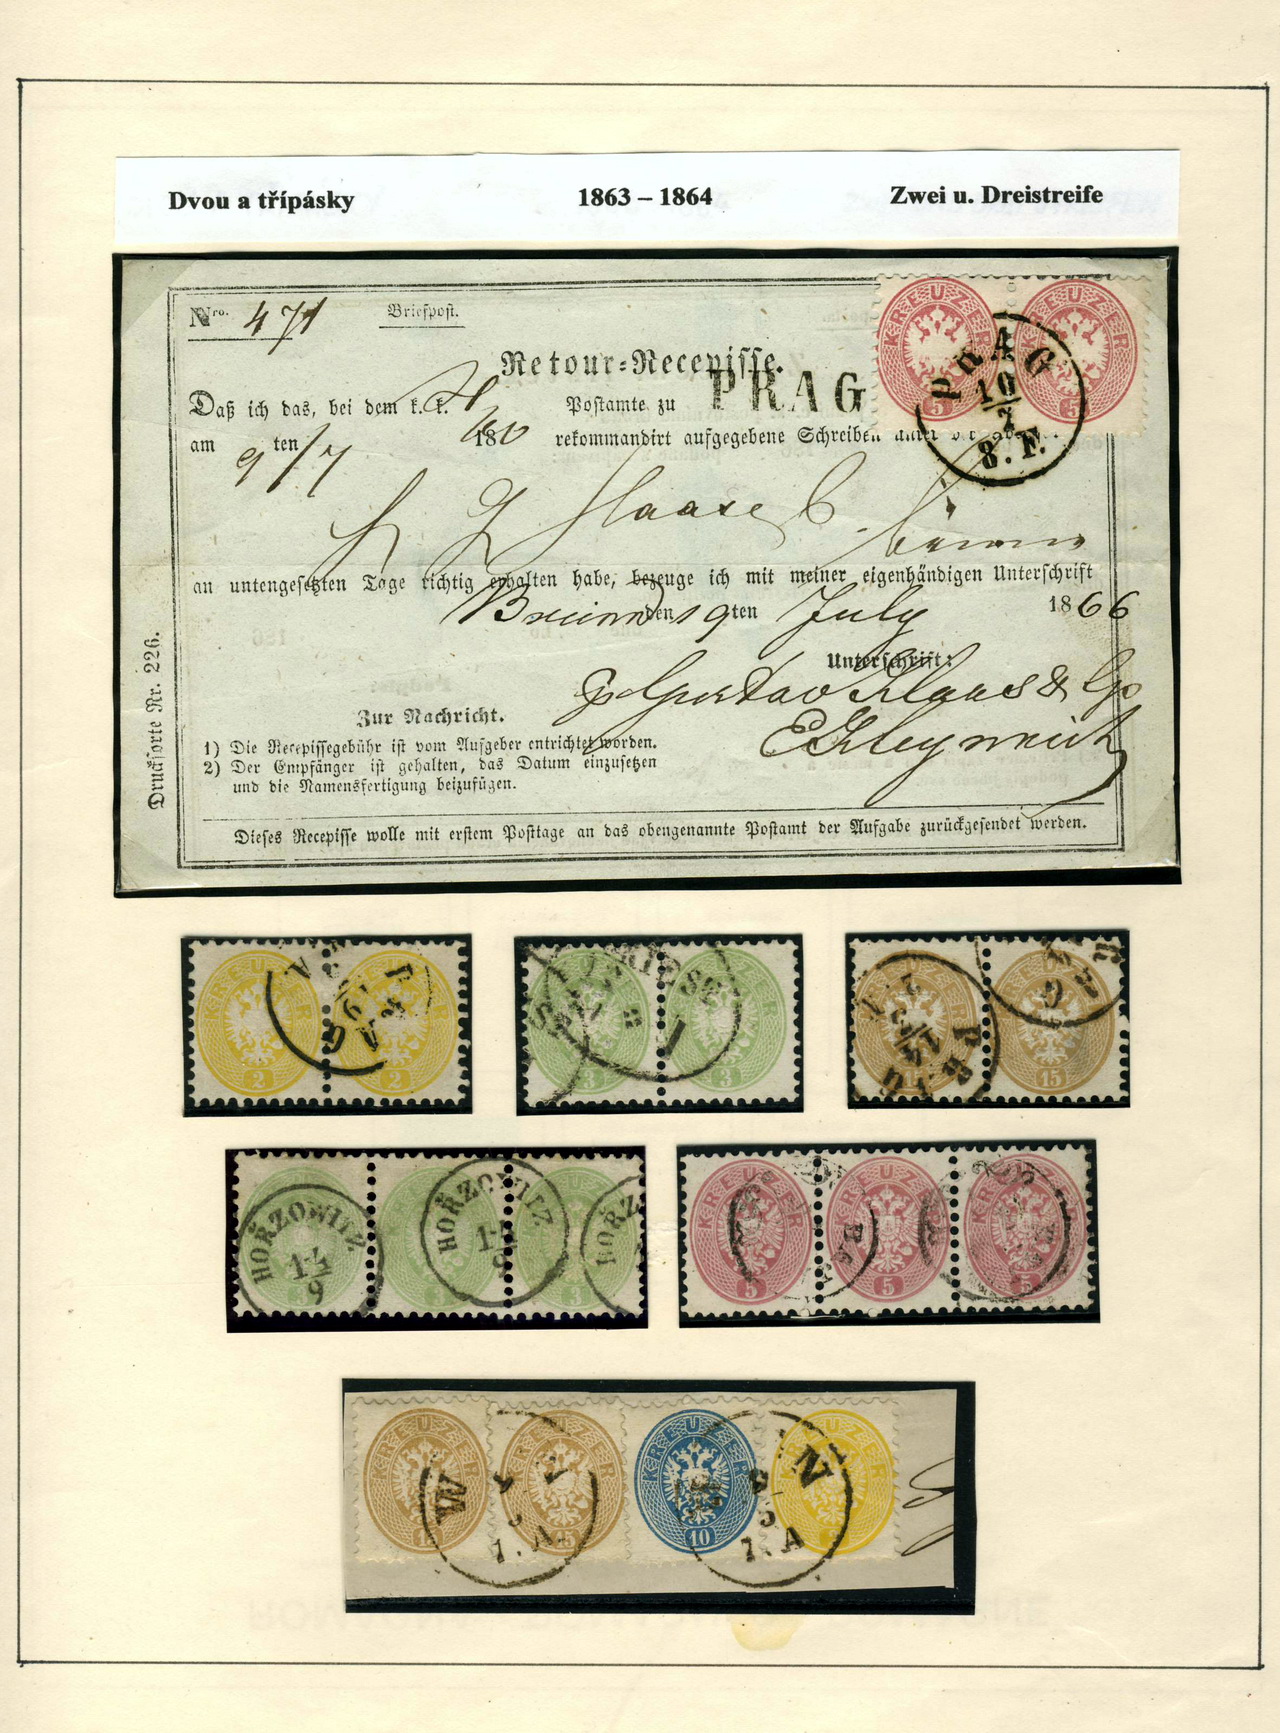 Dvou a třípásky 1863 – 1864 Zwei u. Dreistreife
Nro. 471 Briefpost.
Retour=Recepisse.
PRAG
Daß ich das, bei dem k. k. Postamte zu
am 9/7 ten 186 rekommandirt aufgegebene Schreiben
Haase
an untengesetzten Tage richtig erhalten habe, bezeuge ich mit meiner eigenhändigen Unterschrift
Brünn den 19ten July 1866
Unterschrift:
Gustav Haas & Co
Zur Nachricht.
1) Die Recepissegebühr ist vom Aufgeber entrichtet worden.
2) Der Empfänger ist gehalten, das Datum einzusetzen
und die Namensfertigung beizufügen.
Dieses Recepisse wolle mit erstem Posttage an das obengenannte Postamt der Aufgabe zurückgesendet werden.
Drucksorte Nr. 226.
KREUZER KREUZER
5 5
PRAG
10/7
8. F.
KREUZER KREUZER
2 2
KREUZER
3 3
KREUZER
15 15
HOŘZOWITZ HOŘZOWITZ HOŘZ
14/9 14/9
3
KREUZER KREUZER KREUZER
5 5 5
KREUZER KREUZER KREUZER KREUZER
WIEN
15 15 10 2
5 5
7. A 7. A